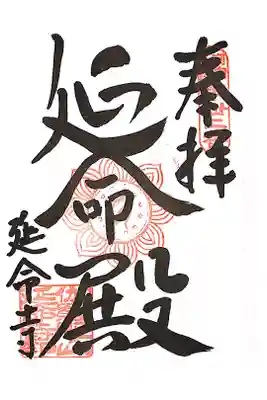 奉拝
延命殿
延命寺